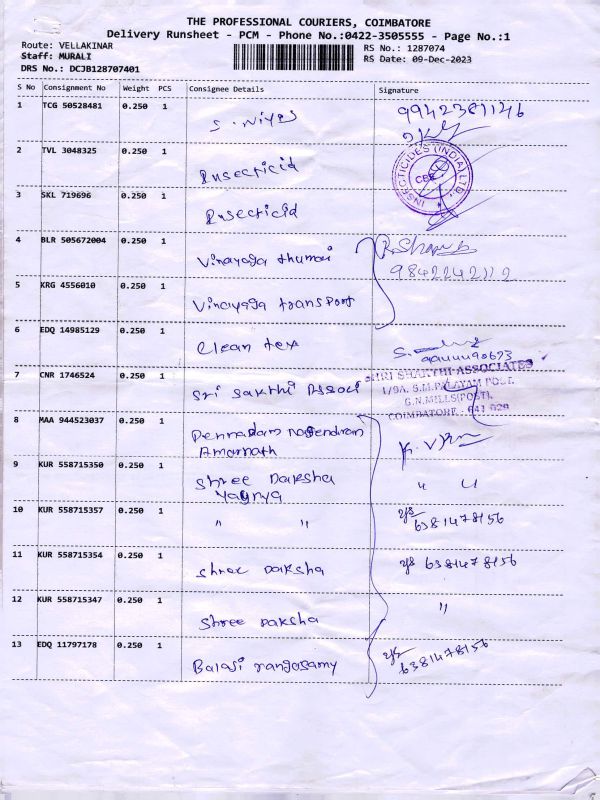 THE PROFESSIONAL COURIERS, COIMBATORE
Delivery Runsheet - PCM - Phone No.:0422-3505555 - Page No.:1
Route: VELLAKINAR
RS No.: 1287074
Staff: MURALI
RS Date: 09-Dec-2023
DRS No.: DCJB128707401
S No Consignment No Weight PCS Consignee Details Signature
1 TCG 50528481 0.250 1 9942381146
2 TVL 3048325 0.250 1 Insecticid
INSECTICIDES (INDIA) LTD. CBE
3 SKL 719696 0.250 1 Insecticid
4 BLR 505672004 0.250 1 Vinayaga
9842242112
5 KRG 4556010 0.250 1 Vinayaga transport
6 EDQ 14985129 0.250 1 Clean tex
7 CNR 1746524 0.250 1 Sri Sakthi Associ
SHRI SHAKTHI ASSOCIATES
1/9A, S.M.PALAYAM POST,
G.N.MILLS(POST),
COIMBATORE - 641 029
8 MAA 944523037 0.250 1
Amarnath
9 KUR 558715350 0.250 1 Shree Daksha
Yagnya " "
10 KUR 558715357 0.250 1 " " 6381478156
11 KUR 558715354 0.250 1 Shree Daksha 6381478156
12 KUR 558715347 0.250 1 Shree Daksha "
13 EDQ 11797178 0.250 1 Balaji rangasamy 6381478156